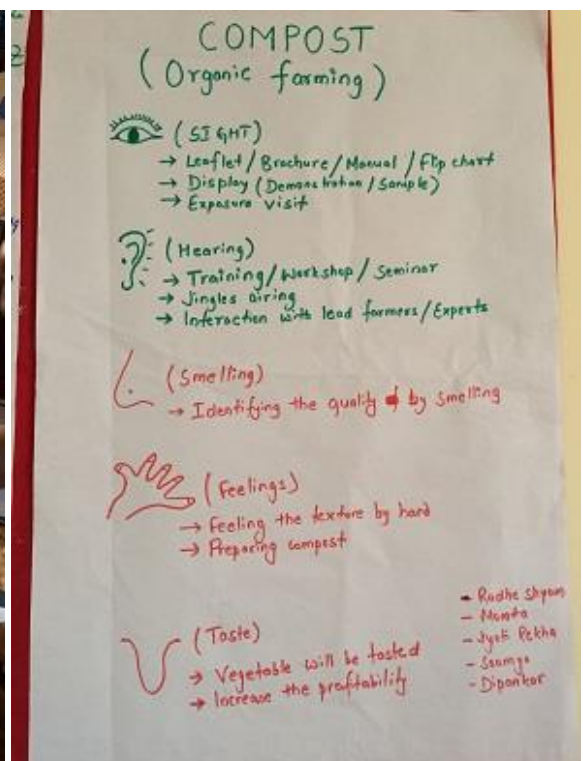 COMPOST
(Organic farming)
(SIGHT)
→ Leaflet/Brochure/Manual/Flip chart
→ Display (Demonstration/Sample)
→ Exposure visit
(Hearing)
→ Training/Workshop/Seminar
→ Jingles airing
→ Interaction with lead farmers/Experts
(Smelling)
→ Identifying the quality by smelling
(Feelings)
→ Feeling the texture by hard
→ Preparing compost
(Taste)
→ Vegetable will be tasted
→ Increase the profitability
- Radhe Shyam
- Mamta
- Jyoti Rekha
- Soumya
- Dipankar